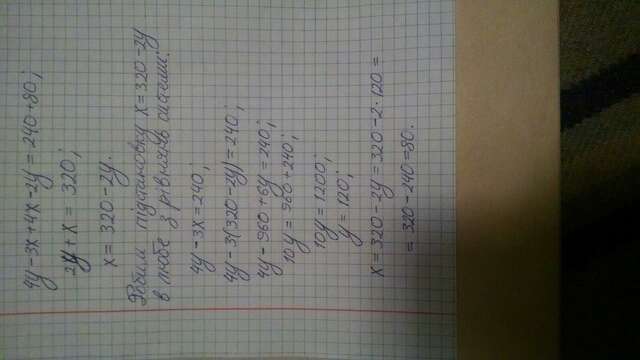 4y-3x+4x-2y=240+80;
2y+x=320;
x=320-2y.
Робим підстановку x=320-2y
в любе з рівнянь системи:
4y-3x=240;
4y-3(320-2y)=240;
4y-960+6y=240;
10y=960+240;
10y=1200;
y=120;
x=320-2y=320-2·120=
=320-240=80.